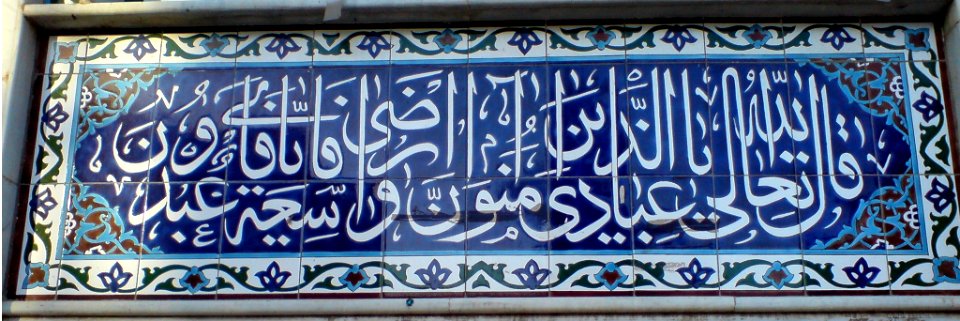 قال الله تعالى يا عبادي الذين آمنوا ان ارضي واسعة فاياي فاعبدون